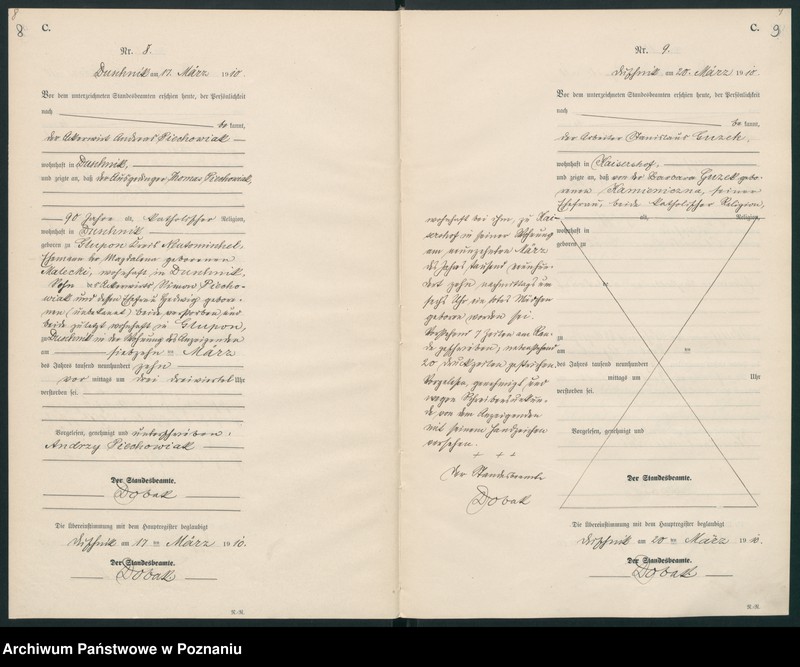 8
8
C.
Nr. 8.
Duschnik am 17. März 1910.
Vor dem unterzeichneten Standesbeamten erschien heute, der Persönlichkeit
nach
be kannt,
der Ackerwirt Andreas Piechowiak
wohnhaft in Duschnik,
und zeigte an, daß der Ausgedinger Thomas Piechowiak,
90 Jahre alt, katholischer Religion,
wohnhaft in Duschnik
geboren zu Glupon
Ehemann der Magdalena geborenen
Malecki, wohnhaft in Duschnik,
Sohn des Ackerwirts Piecho-
wiak und dessen Ehefrau Hedwig gebore-
nen (unbekannt) beide verstorben und
beide zuletzt wohnhaft in Glupon,
Duschnik in der Wohnung des Anzeigenden
am siebzehn ten März
des Jahres tausend neunhundert zehn
vor mittags um drei dreiviertel Uhr
verstorben sei.
Vorgelesen, genehmigt und unterschrieben:
Andrzy Piechowiak
Der Standesbeamte.
Dobak
Die Übereinstimmung mit dem Hauptregister beglaubigt
Duschnik am 17 ten März 1910.
Der Standesbeamte.
Dobak
R.-R.
9
C.
9
Nr. 9.
Duschnik am 20. März 1910.
Vor dem unterzeichneten Standesbeamten erschien heute, der Persönlichkeit
nach
be kannt,
der Arbeiter Stanislaus Guzek,
wohnhaft in Kaisershof,
und zeigte an, daß von der Barbara Guzek gebo-
renen Kamieniczna, seiner
Ehefrau, beide katholischer Religion,
alt, Religion,
wohnhaft in
geboren zu
wohnhaft bei ihm, zu Kai-
sershof in seiner Wohnung
am neunzehnten März
des Jahres tausend neunhun-
dert zehn nachmittags um
sechs Uhr ein totes Mädchen
geboren worden sei.
Vorstehend 7 Zeilen am Ran-
de geschrieben, nebenstehend
20 Druckzeilen gestrichen.
Vorgelesen, genehmigt und
wegen Schreibensunkun-
de von dem Anzeigenden
mit seinem Handzeichen
versehen.
+ + +
Der Standesbeamte
Dobak
zu
am ten
des Jahres tausend neunhundert
mittags um Uhr
verstorben sei.
Vorgelesen, genehmigt und
Der Standesbeamte.
Die Übereinstimmung mit dem Hauptregister beglaubigt
Duschnik am 20 ten März 1910.
Der Standesbeamte.
Dobak
R.-R.
Archiwum Państwowe w Poznaniu